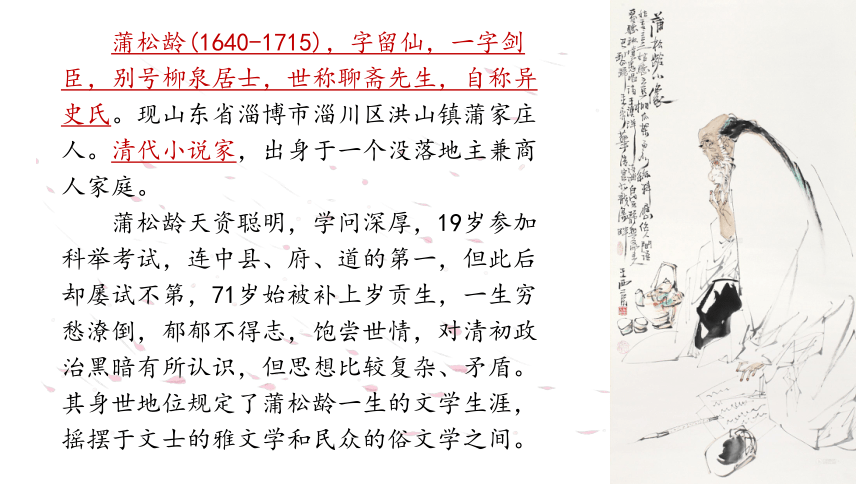 蒲松龄(1640-1715)，字留仙，一字剑
臣，别号柳泉居士，世称聊斋先生，自称异
史氏。现山东省淄博市淄川区洪山镇蒲家庄
人。清代小说家，出身于一个没落地主兼商
人家庭。
蒲松龄天资聪明，学问深厚，19岁参加
科举考试，连中县、府、道的第一，但此后
却屡试不第，71岁始被补上岁贡生，一生穷
愁潦倒，郁郁不得志，饱尝世情，对清初政
治黑暗有所认识，但思想比较复杂、矛盾。
其身世地位规定了蒲松龄一生的文学生涯，
摇摆于文士的雅文学和民众的俗文学之间。
蒲松龄小像